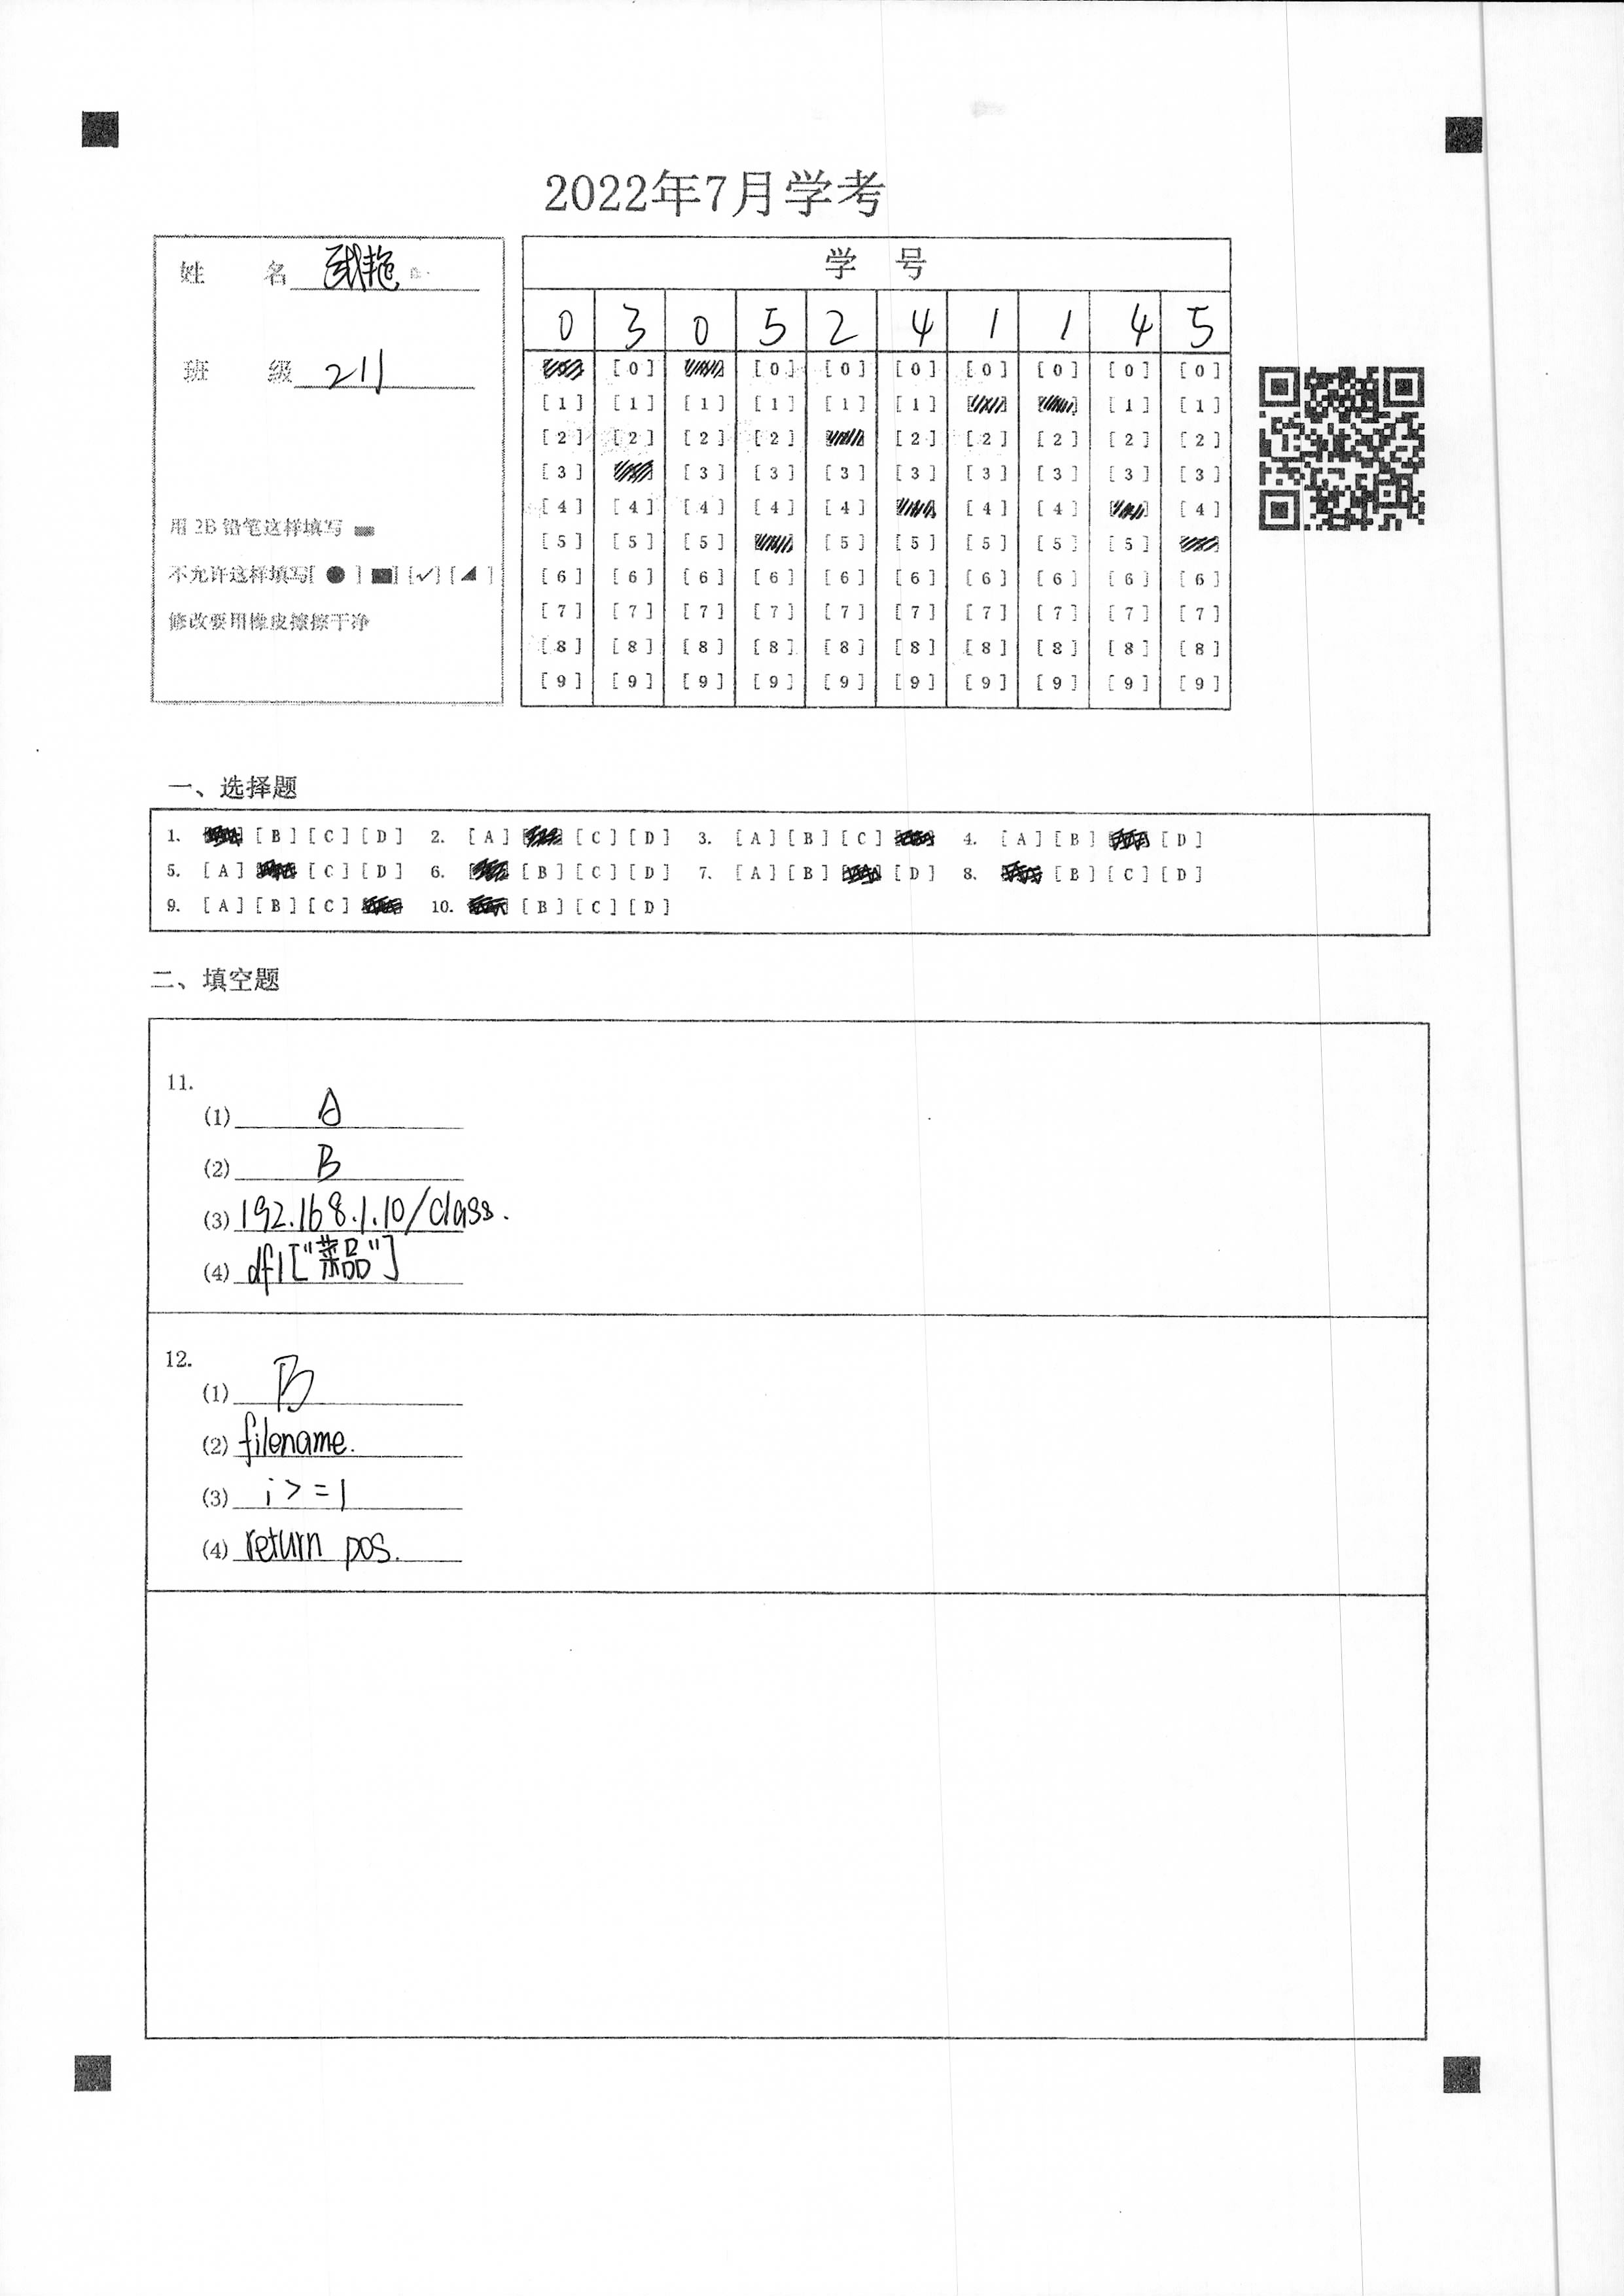 2022年7月学考
姓 名
班 级 211
用2B铅笔这样填写
不允许这样填写[●] [■] [✓] [◢]
修改要用橡皮擦擦干净
学 号
0 3 0 5 2 4 1 1 4 5
[0] [0] [0] [0] [0] [0] [0] [0]
[1] [1] [1] [1] [1] [1] [1] [1]
[2] [2] [2] [2] [2] [2] [2] [2] [2]
[3] [3] [3] [3] [3] [3] [3] [3] [3]
[4] [4] [4] [4] [4] [4] [4] [4]
[5] [5] [5] [5] [5] [5] [5] [5]
[6] [6] [6] [6] [6] [6] [6] [6] [6] [6]
[7] [7] [7] [7] [7] [7] [7] [7] [7] [7]
[8] [8] [8] [8] [8] [8] [8] [8] [8] [8]
[9] [9] [9] [9] [9] [9] [9] [9] [9] [9]
一、选择题
1. [B] [C] [D] 2. [A] [C] [D] 3. [A] [B] [C] 4. [A] [B] [D]
5. [A] [C] [D] 6. [B] [C] [D] 7. [A] [B] [D] 8. [B] [C] [D]
9. [A] [B] [C] 10. [B] [C] [D]
二、填空题
11.
(1) A
(2) B
(3) 192.168.1.10/class.
(4) df1["菜品"]
12.
(1) B
(2) filename.
(3) i>=1
(4) return pos.